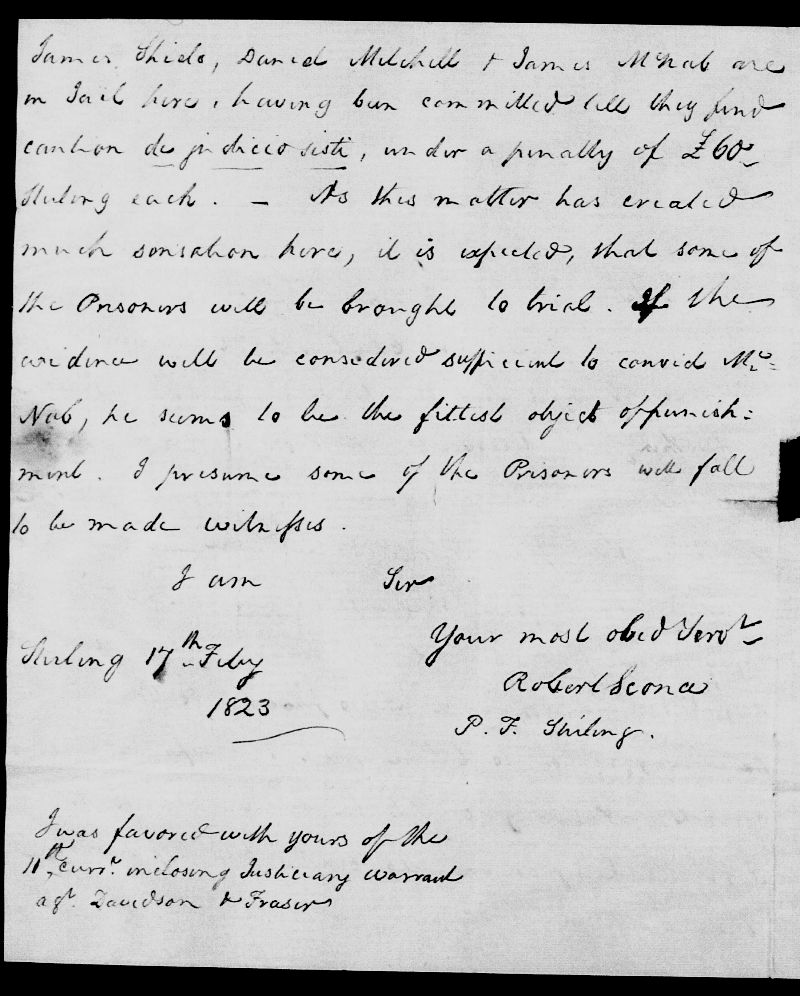 James Shiels, Daniel Mitchell & James McNab are
in Jail here, having been committed till they find
caution de judicio sisti, under a penalty of £60
Sterling each. – As this matter has created
much sensation here, it is expected, that some of
the Prisoners will be brought to trial. If the
evidence will be considered sufficient to convict Mc=
Nab, he seems to be the fittest object of punish=
ment. I presume some of the Prisoners will fall
to be made witnesses.
I am Sir
Your most obed Servt
Stirling 17th Feby
1823
Robert Sconce
P. F. Stirling.
I was favored with yours of the
11th Currt. inclosing Justiciary warrant
agt. Davidson & Fraser